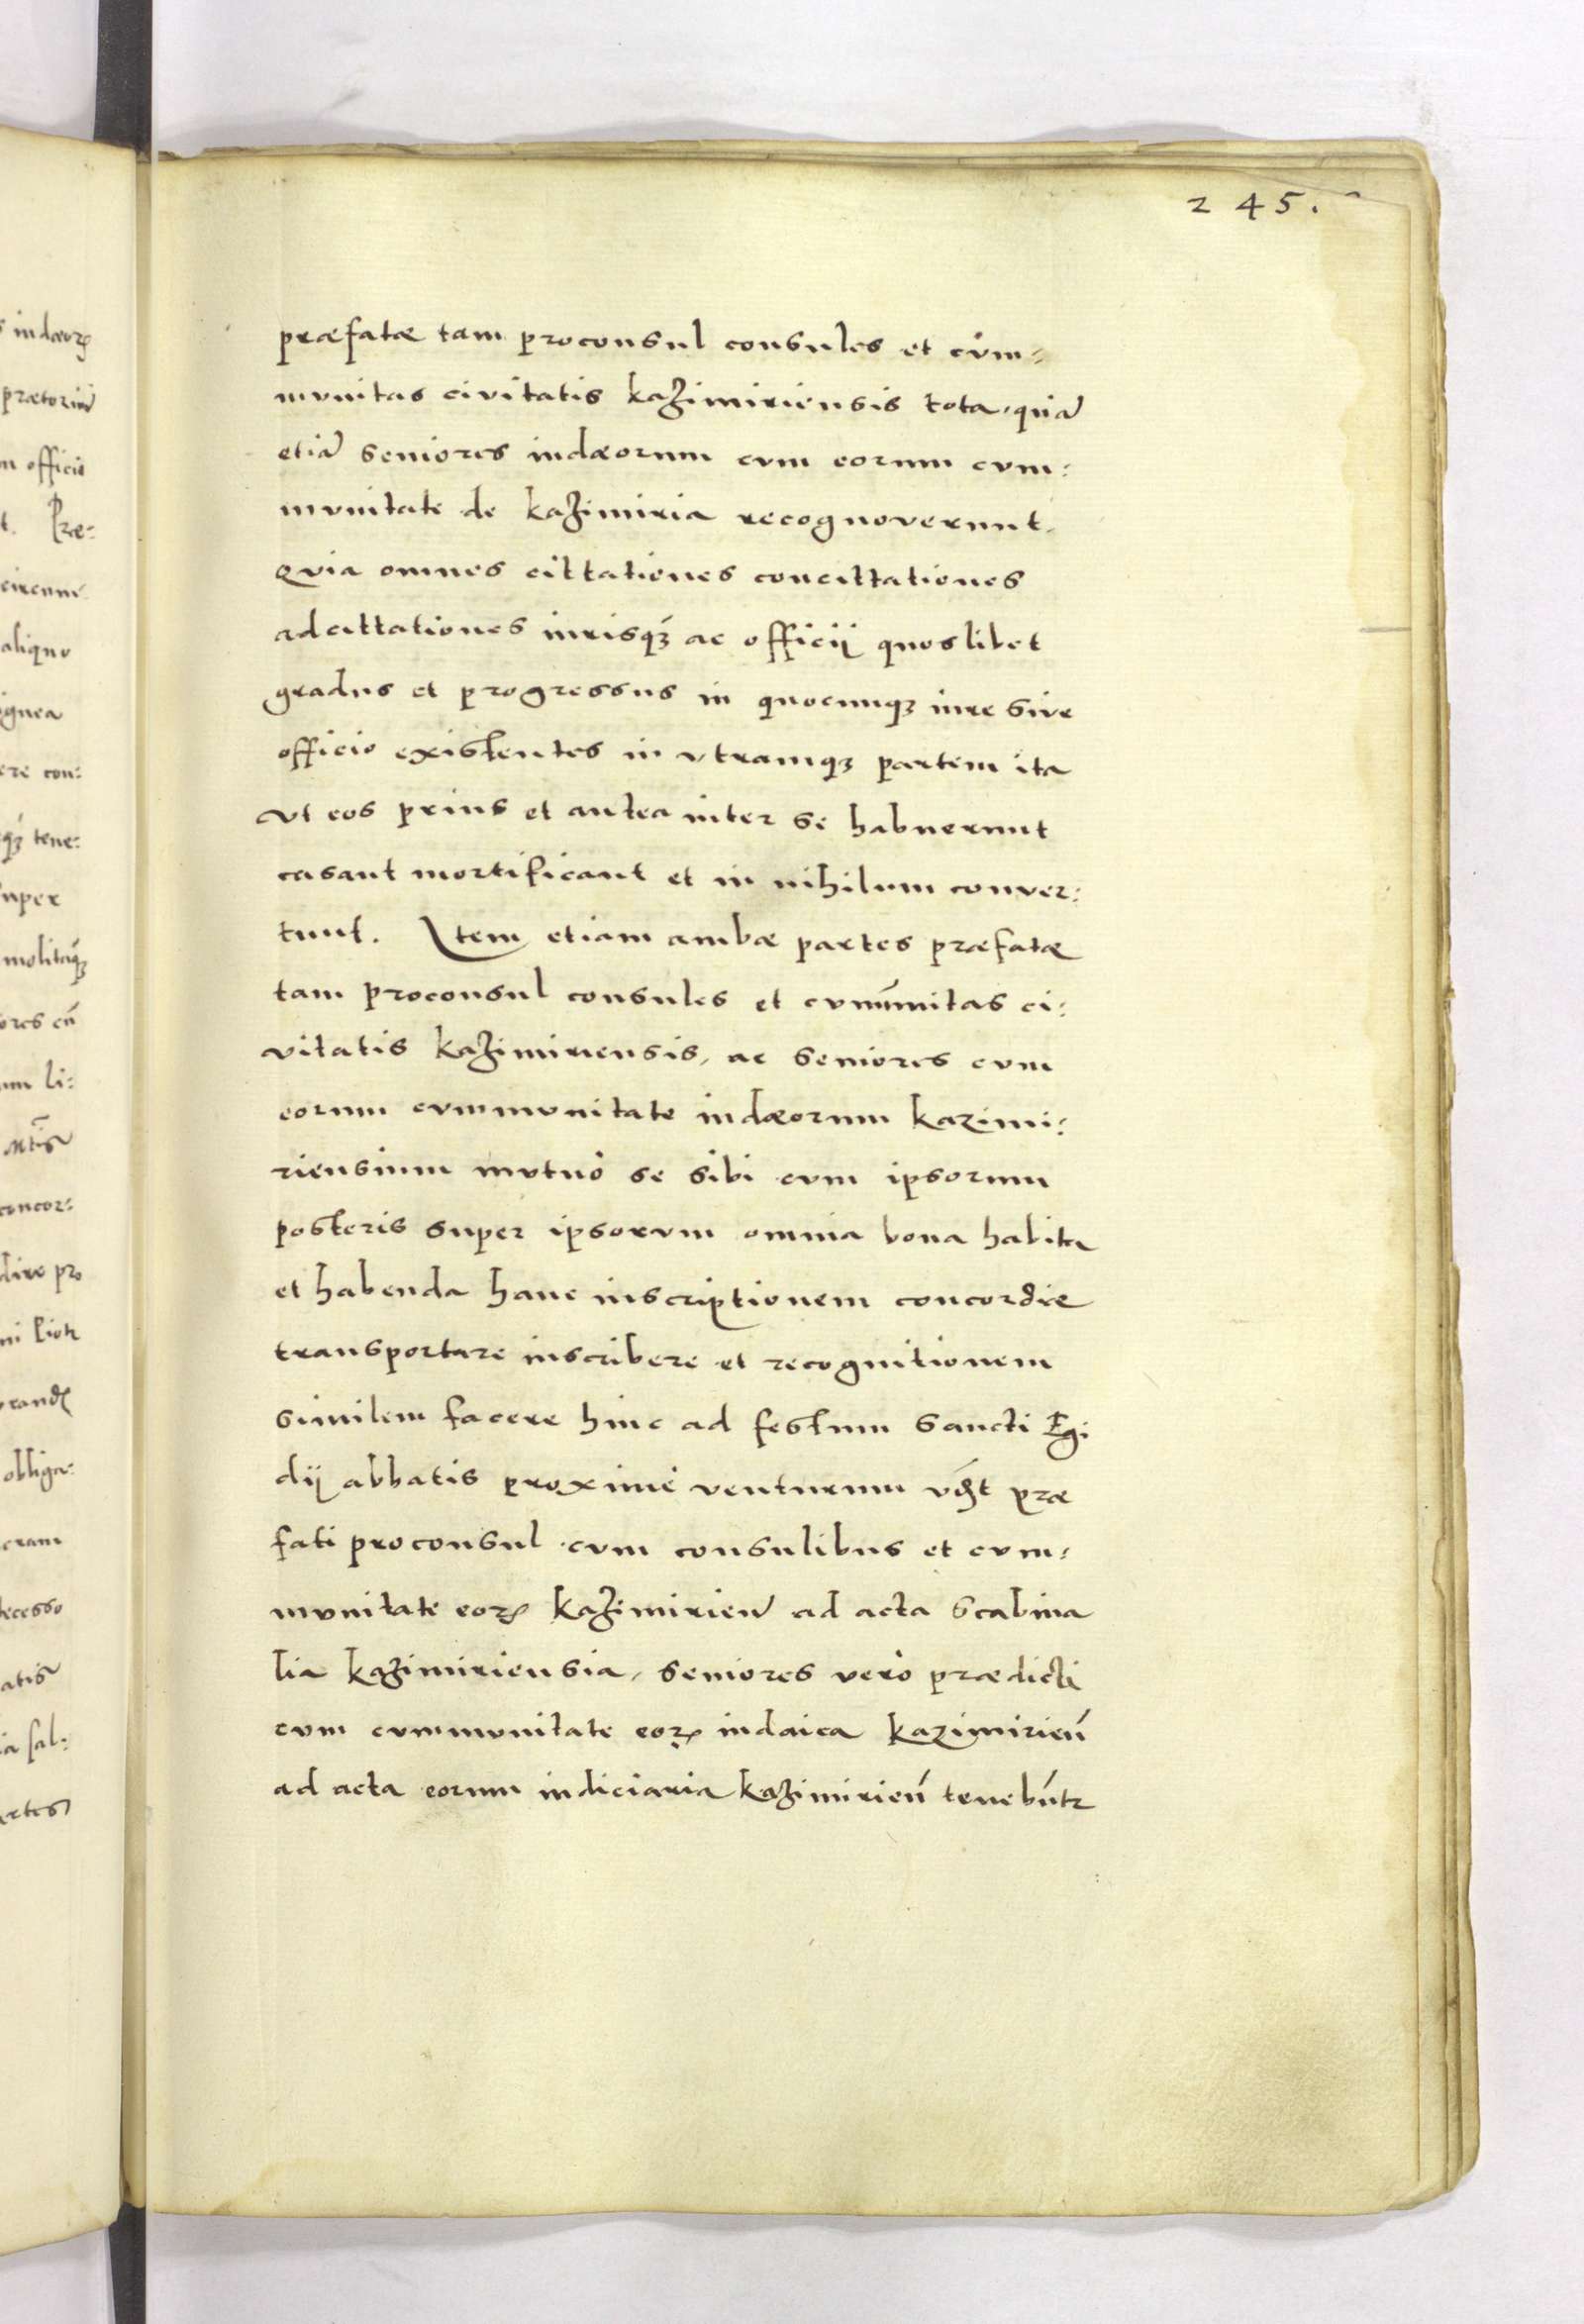 245.
præfatæ tam proconsul consules et cúm⸗
mvnitas civitatis kaʒimiriensis tota, quã
etiã seniores iudæorum cvm eorum cvm⸗
mvnitate de kaʒimiria recognoverunt,
qvia omnes cittationes concittationes
adcittationes iurisqꝫ ac officij quoslibet
gradus et progressus in quocunqꝫ iure sive
officio existentes in vtramqꝫ partem ita
vt eos prius et antea inter se habuerunt
casant mortificant et in nihilum conver⸗
tunt. Item etiam ambæ partes præfatæ
tam proconsul consules et cvmũnitas ci⸗
vitatis kaʒimiriensis, ac seniores cvm
eorum cvmmvnitate iudæorum kazimi⸗
riensium mvtuò se sibi cvm ipsorum
posteris super ipsorvm omnia bona habita
et habenda hanc inscriptionem concordiæ
transportare inscribere et recognitionem
similem facere hinc ad festum sancti Egi
dij abbatis proximè venturum vꝫt præ
fati proconsul cvm consulibus et cvm⸗
mvnitate eoꝝ kaʒimirieñ ad acta scabina
lia kaʒimiriensia, seniores verò prædicti
cvm cvmmvnitate eoꝝ iudaica kazimirieñ
ad acta eorum iudiciaria kaʒimirieñ teneb̃ntr
iudæoꝝ
prætoriũ
officii
Præ⸗
circum
aliquo
ere con⸗
qꝫ tene⸗
super
molitaqꝫ
ores cũ
um li⸗
concor⸗
obliga⸗
eram
ia sal⸗